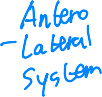 Antero
-Lateral
System